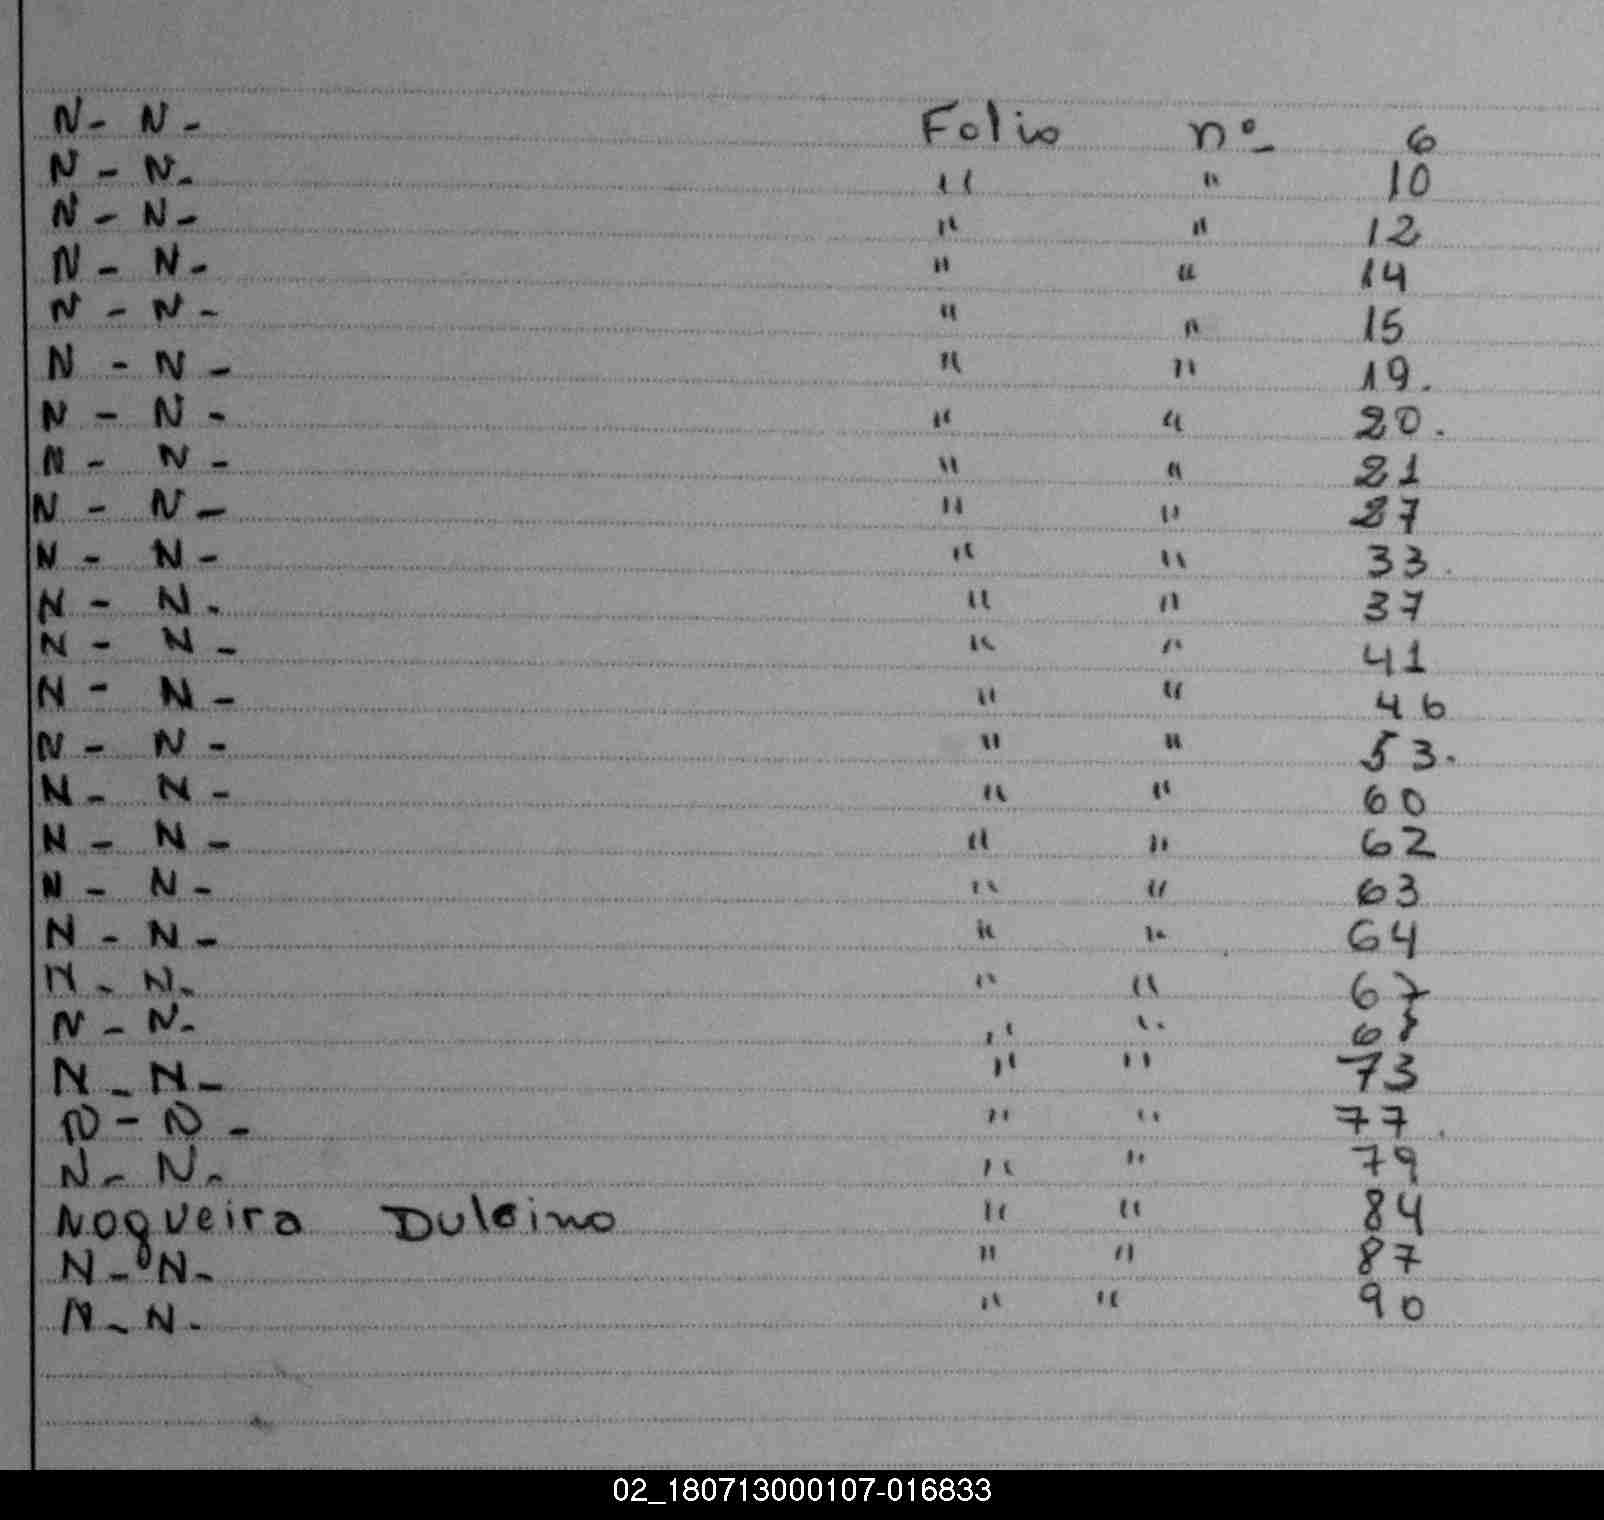 N- N- Folio nº 6
N- N- " " 10
N- N- " " 12
N- N- " " 14
N- N- " " 15
N- N- " " 19.
N- N- " " 20.
N- N- " " 21
N- N- " " 27
N- N- " " 33.
N- N- " " 37
N- N- " " 41
N- N- " " 46
N- N- " " 53.
N- N- " " 60
N- N- " " 62
N- N- " " 63
N- N- " " 64
N- N- " " 67
N- N- " " 68
N- N- " " 73
N- N- " " 77.
N- N- " " 79
Nogueira Dulcino " " 84
N- N- " " 87
N- N- " " 90
02_180713000107-016833